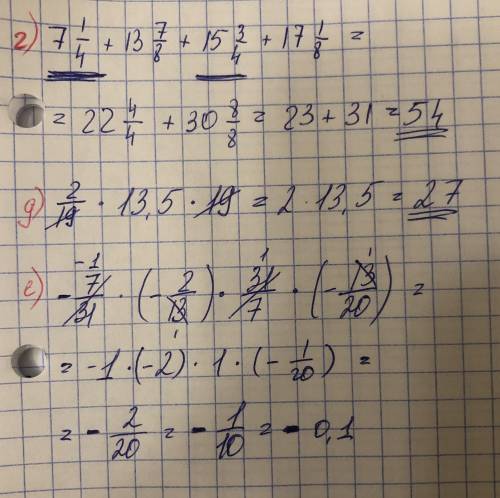 г) 7 1/4 + 13 7/8 + 15 3/4 + 17 1/8 =
= 22 4/4 + 30 8/8 = 23 + 31 = 54
д) 2/19 · 13,5 · 19 = 2 · 13,5 = 27
е) - 7/31 · (- 2/13) · 31/7 · (- 13/20) =
= -1 · (-2) · 1 · (- 1/20) =
= - 2/20 = - 1/10 = - 0,1